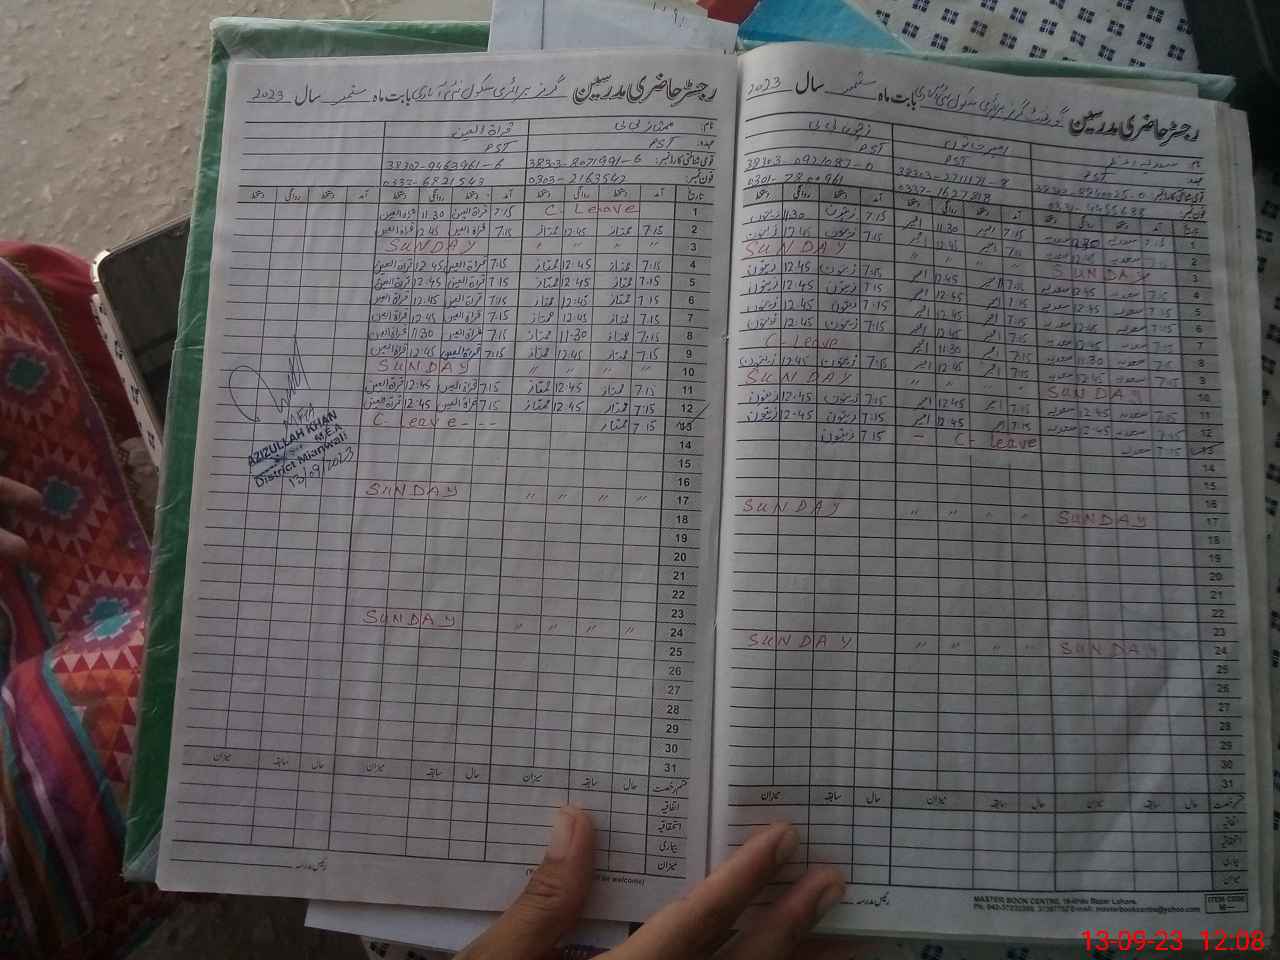 رجسٹر حاضری مدرسین گرلز پرائمری سکول بابت ماہ ستمبر سال 2023
نام: ممتاز بی بی قراۃ العین
عہدہ: PST PST
قومی شناختی کارڈ نمبر: 38303-8071991-6 38302-9463961-6
فون نمبر: 0303-2163542 0332-6821543
تاریخ آمد دستخط روانگی دستخط آمد دستخط روانگی دستخط آمد دستخط روانگی دستخط
1 C-Leave 7:15 قراۃ العین 11:30 قراۃ العین
2 7:15 ممتاز 12:45 ممتاز 7:15 قراۃ العین 12:45 قراۃ العین
3 " " " " SUNDAY
4 7:15 ممتاز 12:45 ممتاز 7:15 قراۃ العین 12:45 قراۃ العین
5 7:15 ممتاز 12:45 ممتاز 7:15 قراۃ العین 12:45 قراۃ العین
6 7:15 ممتاز 12:45 ممتاز 7:15 قراۃ العین 12:45 قراۃ العین
7 7:15 ممتاز 12:45 ممتاز 7:15 قراۃ العین 12:45 قراۃ العین
8 7:15 ممتاز 11:30 ممتاز 7:15 قراۃ العین 11:30 قراۃ العین
9 7:15 ممتاز 12:45 ممتاز 7:15 قراۃ العین 12:45 قراۃ العین
10 " " " " SUNDAY
11 7:15 ممتاز 12:45 ممتاز 7:15 قراۃ العین 12:45 قراۃ العین
12 7:15 ممتاز 12:45 ممتاز 7:15 قراۃ العین 12:45 قراۃ العین
13 7:15 ممتاز C-Leave - - -
14
15
16
17 " " " " SUNDAY
18
19
20
21
22
23
24 " " " " SUNDAY
25
26
27
28
29
30
31
قسم رخصت حال سابقہ میزان حال سابقہ میزان حال سابقہ میزان
اتفاقیہ
استحقاقیہ
بیماری
میزان
رئیس مدرسہ
be welcome)
AZIZULLAH KHAN
MEA
District Mianwali
13/09/2023
رجسٹر حاضری مدرسین گورنمنٹ گرلز پرائمری سکول بابت ماہ ستمبر سال 2023
نام زیتون بی بی
عہدہ PST PST PST
قومی شناختی کارڈ نمبر 38302-8940025-0 38303-2711171-8 38303-0921087-0
فون نمبر 0331-4455688 0332-1627818 0301-7800961
تاریخ آمد دستخط روانگی دستخط آمد دستخط روانگی دستخط آمد دستخط روانگی دستخط
1 7:15 سعدیہ 11:30 سعدیہ 7:15 امیر 11:30 امیر 7:15 زیتون 11:30 زیتون
2 7:15 امیر 12:45 امیر 7:15 زیتون 12:45 زیتون
3 SUNDAY " " " " SUNDAY
4 7:15 سعدیہ 12:45 سعدیہ 7:15 امیر 12:45 امیر 7:15 زیتون 12:45 زیتون
5 7:15 سعدیہ 12:45 سعدیہ 7:15 امیر 12:45 امیر 7:15 زیتون 12:45 زیتون
6 7:15 سعدیہ 12:45 سعدیہ 7:15 امیر 12:45 امیر 7:15 زیتون 12:45 زیتون
7 7:15 سعدیہ 12:45 سعدیہ 7:15 امیر 12:45 امیر 7:15 زیتون 12:45 زیتون
8 7:15 سعدیہ 11:30 سعدیہ 7:15 امیر 11:30 امیر C-Leave
9 7:15 سعدیہ 12:45 سعدیہ 7:15 امیر 12:45 امیر 7:15 زیتون 12:45 زیتون
10 SUNDAY " " " " SUNDAY
11 7:15 سعدیہ 12:45 سعدیہ 7:15 امیر 12:45 امیر 7:15 زیتون 12:45 زیتون
12 7:15 سعدیہ 12:45 سعدیہ 7:15 امیر 12:45 امیر 7:15 زیتون 12:45 زیتون
13 7:15 سعدیہ C Leave - 7:15 زیتون
14
15
16
17 SUNDAY " " " " SUNDAY
18
19
20
21
22
23
24 SUNDAY " " " " SUNDAY
25
26
27
28
29
30
31
قسم رخصت حال سابقہ میزان حال سابقہ میزان حال سابقہ میزان
اتفاقیہ
استحقاقیہ
بیماری
میزان
رئیس مدرسہ
MASTER BOOK CENTRE, Urdu Bazar Lahore.
ITEM CODE
13-09-23 12:08